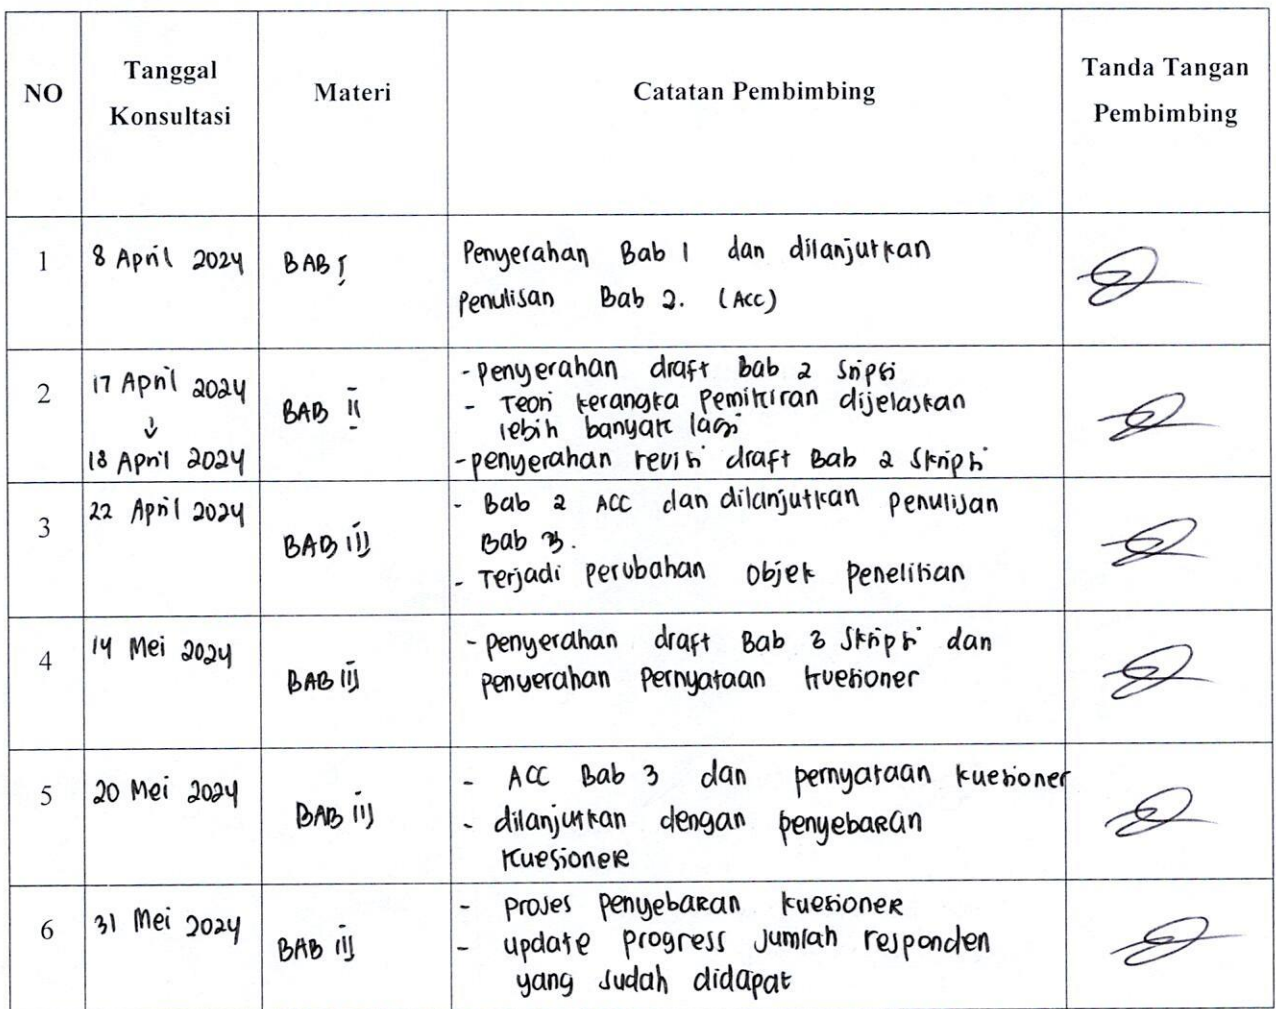 NO
Tanggal
Konsultasi
Materi
Catatan Pembimbing
Tanda Tangan
Pembimbing
1
8 April 2024
BAB I
Penyerahan Bab 1 dan dilanjutkan
Penulisan Bab 2. (ACC)
2
17 April 2024
↓
18 April 2024
BAB II
- Penyerahan draft Bab 2 Sripsi
- Teori kerangka Pemikiran dijelaskan
lebih banyak lagi
- penyerahan revisi draft Bab 2 Skripsi
3
22 April 2024
BAB III
- Bab 2 ACC dan dilanjutkan penulisan
Bab 3.
- Terjadi perubahan objek penelitian
4
14 Mei 2024
BAB III
- penyerahan draft Bab 3 Skripsi dan
penyerahan Pernyataan kuesioner
5
20 Mei 2024
BAB III
- ACC Bab 3 dan pernyataan kuesioner
- dilanjutkan dengan penyebaran
kuesioner
6
31 Mei 2024
BAB III
- Proses Penyebaran kuesioner
- update progress jumlah responden
yang sudah didapat